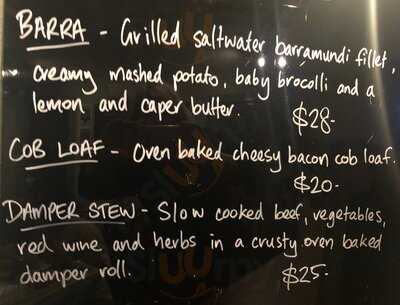 BARRA - Grilled saltwater barramundi fillet,
creamy mashed potato, baby brocolli and a
lemon and caper butter.
$28-
COB LOAF - Oven baked cheesy bacon cob loaf.
$20-
DAMPER STEW - Slow cooked beef, vegetables,
red wine and herbs in a crusty oven baked
damper roll.
$25-